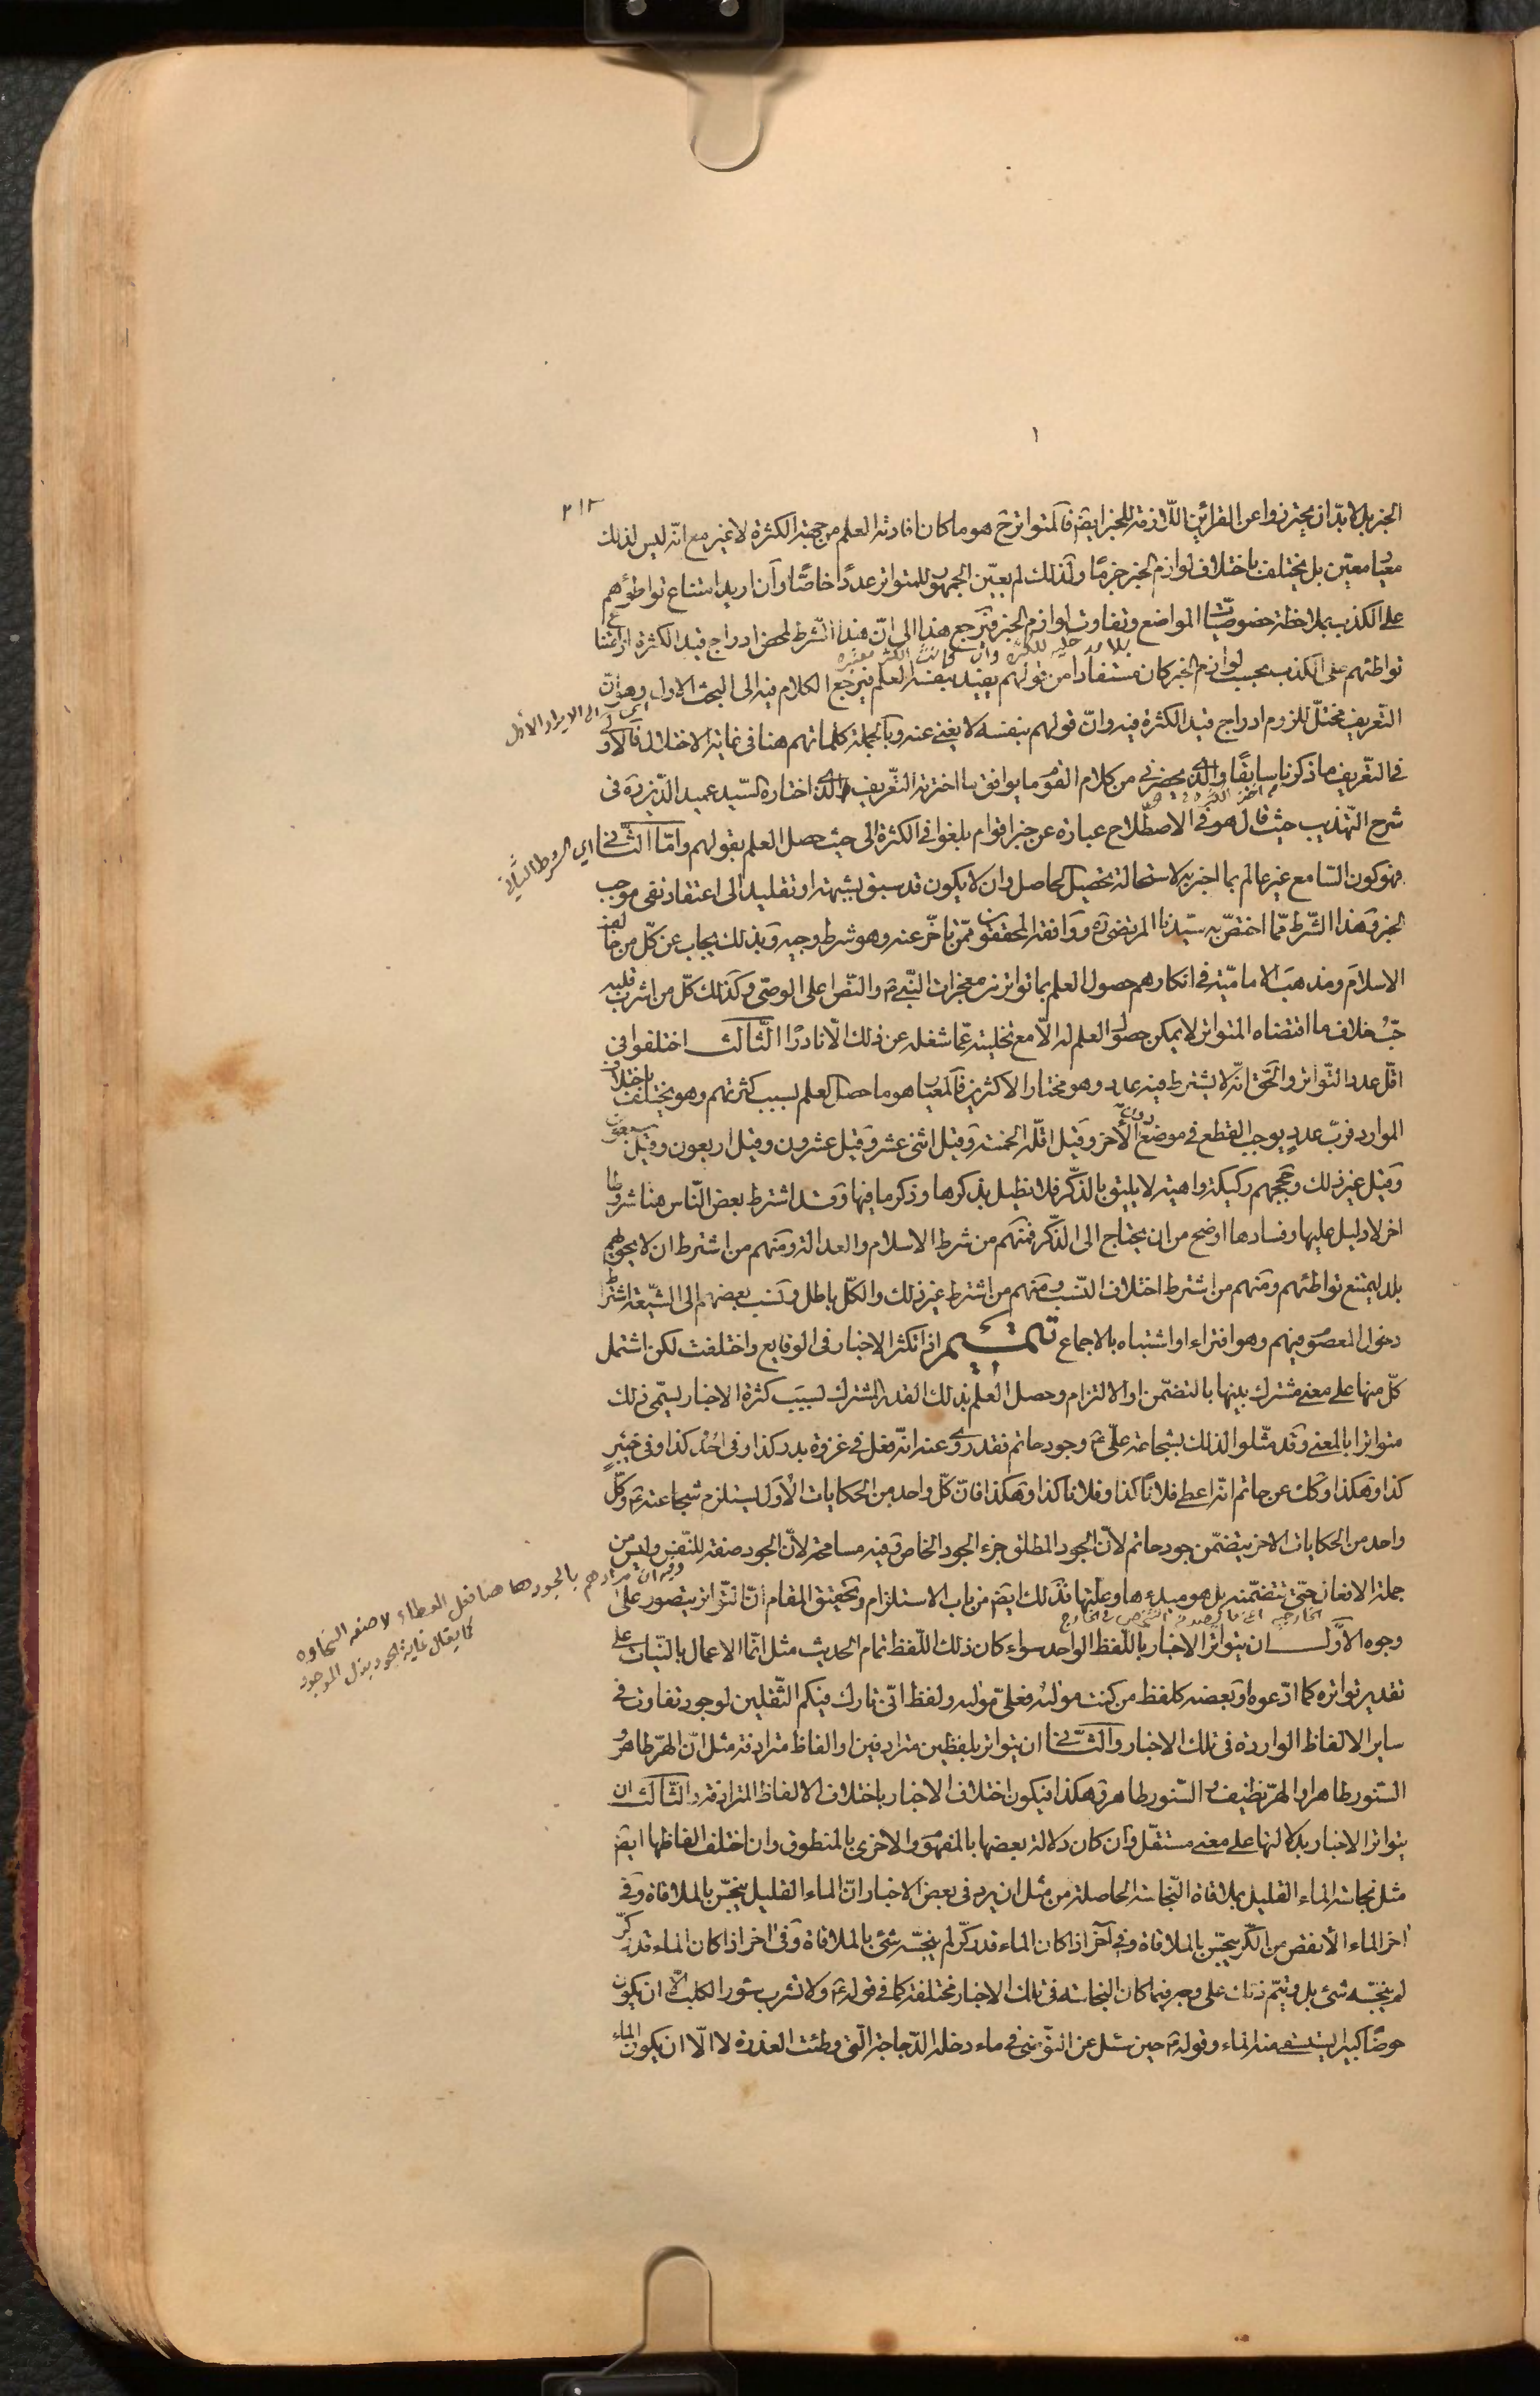 ٢١٢
الخبر بل لا بدّ ان يحترزوا عن القرائن اللّازمة للخبر ايضۤ فالمتواتر ح هو ما كان افادته العلم من جهة الكثرة لا غير مع انّه ليس لذلك
معيار معيّن بل يختلف باختلاف لوازم الخبر جزمًا ولذلك لم يعيّن الجمهور للمتواتر عددًا خاصًّا وان اريد امتناع تواطؤهم
على الكذب بملاحظة خصوصيّات المواضع وتفاوت لوازم الخبر فيرجع هذا الى انّ هذا الشّرط لمحض ادراج قيد الكثرة اذ امتناع
بلا مدخلية للكثرة وان كانت الكثرة معتبرة
تواطئهم على الكذب بحسب لوازم الخبر كان مستفادا من قولهم يفيد بنفسه العلم فيرجع الكلام فيه الى البحث الاول وهو انّ
اى الى الايراد الاول
التعريف مختلّ للزوم ادراج قيد الكثرة فيه وانّ قولهم بنفسه لا يغنى عنه وبالجملة كلماتهم هنا فى غاية الاختلال فالاولى
فى التعريف ما ذكرنا سابقًا والّذى يحضرنى من كلام القوم ما يوافق ما اخترته التعريف الّذى اختاره السّيد عميد الدّين ره فى
شرح التهذيب حيث قال هو فى الاصطلاح عبارة عن خبر اقوام بلغوا فى الكثرة الى حيث حصل العلم بقولهم وامّا الثّانى
اى الشرط الثّانى
فهو كون السّامع غير عالم بما اخبر به لاستحالة تحصيل الحاصل وان لا يكون قد سبق بشبهة او تقليد الى اعتقاد نفى موجب
الخبر وهذا الشّرط ممّا اختصّ به سيّدنا المرتضى ره ووافقه المحققون ممّن تاخّر عنه وهو شرط وجيه وبذلك يجاب عن كلّ من خالف
الاسلام ومذهب الاماميّة فى انكارهم حصول العلم بما تواتر من معجزات النّبىّ ص والنصّ على الوصىّ وكذلك كلّ من اشرب قلبه
حبّ خلاف ما اقتضاه المتواتر لا يمكن حصول العلم له الّا مع تخليته عمّا شغله عن ذلك الّا نادرًا الثّالث اختلفوا فى
اقلّ عدد التّواتر والحقّ انّه لا يشترط فيه عدد وهو مختار الاكثرين فالمعيار هو ما حصل العلم بسبب كثرتهم وهو يختلف باختلاف
الموارد فربّ عدد يوجب القطع فى موضع دون الآخر وقيل اقلّه الخمسة وقيل اثنى عشر وقيل عشرون وقيل اربعون وقيل سبعون
وقيل غير ذلك وحججهم ركيكة واهية لا يليق بالذّكر فلا نطيل بذكرها وذكر ما فيها وقد اشترط بعض النّاس هنا شروطا
اخر لا دليل عليها وفسادها اوضح من ان يحتاج الى الذّكر فمنهم من شرط الاسلام والعدالة ومنهم من اشترط ان لا يحويهم
بلد ليمتنع تواطئهم ومنهم من اشترط اختلاف النّسب ومنهم من اشترط غير ذلك والكلّ باطل ونسب بعضهم الى الشّيعة اشتراط
دخول المعصوم فيهم وهو افتراء او اشتباه بالاجماع تتميم اذا تكثر الاخبار فى الوقايع واختلفت لكن اشتمل
كلّ منها على معنى مشترك بينها بالتضمّن او الالتزام وحصل العلم بذلك القدر المشترك بسبب كثرة الاخبار يسمّى ذلك
متواترا بالمعنى وقد مثّلوا لذلك بشجاعة علىّ ع وجود حاتم فقد روى عنه انّه فعل فى غزوة بدر كذا وفى احُد كذا وفى خيبر
كذا وهكذا وكك عن حاتم انّه اعطى فلانًا كذا وفلانا كذا وهكذا فانّ كلّ واحد من الحكايات الأوَل يستلزم شجاعته ع وكلّ
واحد من الحكايات الاخر يتضمّن جود حاتم لأنّ الجود المطلق جزء الجود الخاص وفيه مسامحة لأنّ الجود صفة للنّفس وليس من
وفيه ان مرادهم بالجود ها هنا فعل العطاء لا صفة السخاوة
كما يقال غاية الجود بذل الموجود
جملة الافعال حتّى تتضمّنه بل هو مبدء ها وعلّتها فذلك ايضۤ من باب الاستلزام وتحقيق المقام انّ التّواتر يتصور على
وجوه الأوّل ان يتواتر الاخبار باللّفظ الواحد سواء كان ذلك اللّفظ تمام الحديث مثل انّما الاعمال بالنّيات على
تقدير تواتره كما ادّعوه او بعضه كلفظ من كنت مولاه فعلىّ مولاه ولفظ انّى تارك فيكم الثّقلين لوجود تفاوت فى
ساير الالفاظ الواردة فى تلك الاخبار والثّانى ان يتواتر بلفظين مترادفين او الفاظ مترادفة مثل انّ الهرّ طاهر و
السّنور طاهر او الهرّ نظيف والسّنور طاهر وهكذا فيكون اختلاف الاخبار باختلاف الالفاظ المترادفة والثّالث ان
يتواتر الاخبار بدلالتها على معنى مستقلّ وان كان دلالة بعضها بالمفهوم والاخرى بالمنطوق وان اختلف الفاظها ايضۤ
مثل نجاسة الماء القليل بملاقاة النّجاسة الحاصلة من مثل ان يرد فى بعض الاخبار انّ الماء القليل ينجس بالملاقاة وفى
اخر الماء الأنقص من الكرّ ينجس بالملاقاة وفى آخر اذا كان الماء قدر كرّ لم ينجسّه شئ بالملاقاة وفى اخر اذا كان الماء قدر كرّ
لم ينجسّه شئ بل ويتمّ ذلك على وجه فيما كان النجاسة فى تلك الاخبار مختلفة كما فى قوله ع ولا تشرب سؤر الكلب الّا ان يكون
حوضًا كبيرا يستسقى منه الماء وقوله ع حين سئل عن التّوضى فى ماء دخله الدّجاجة الّتى وطئت العذرة لا الّا ان يكون الماء